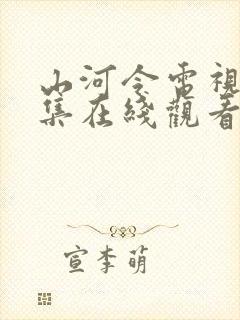 山河令電視
集在綫觀看
宣李萌